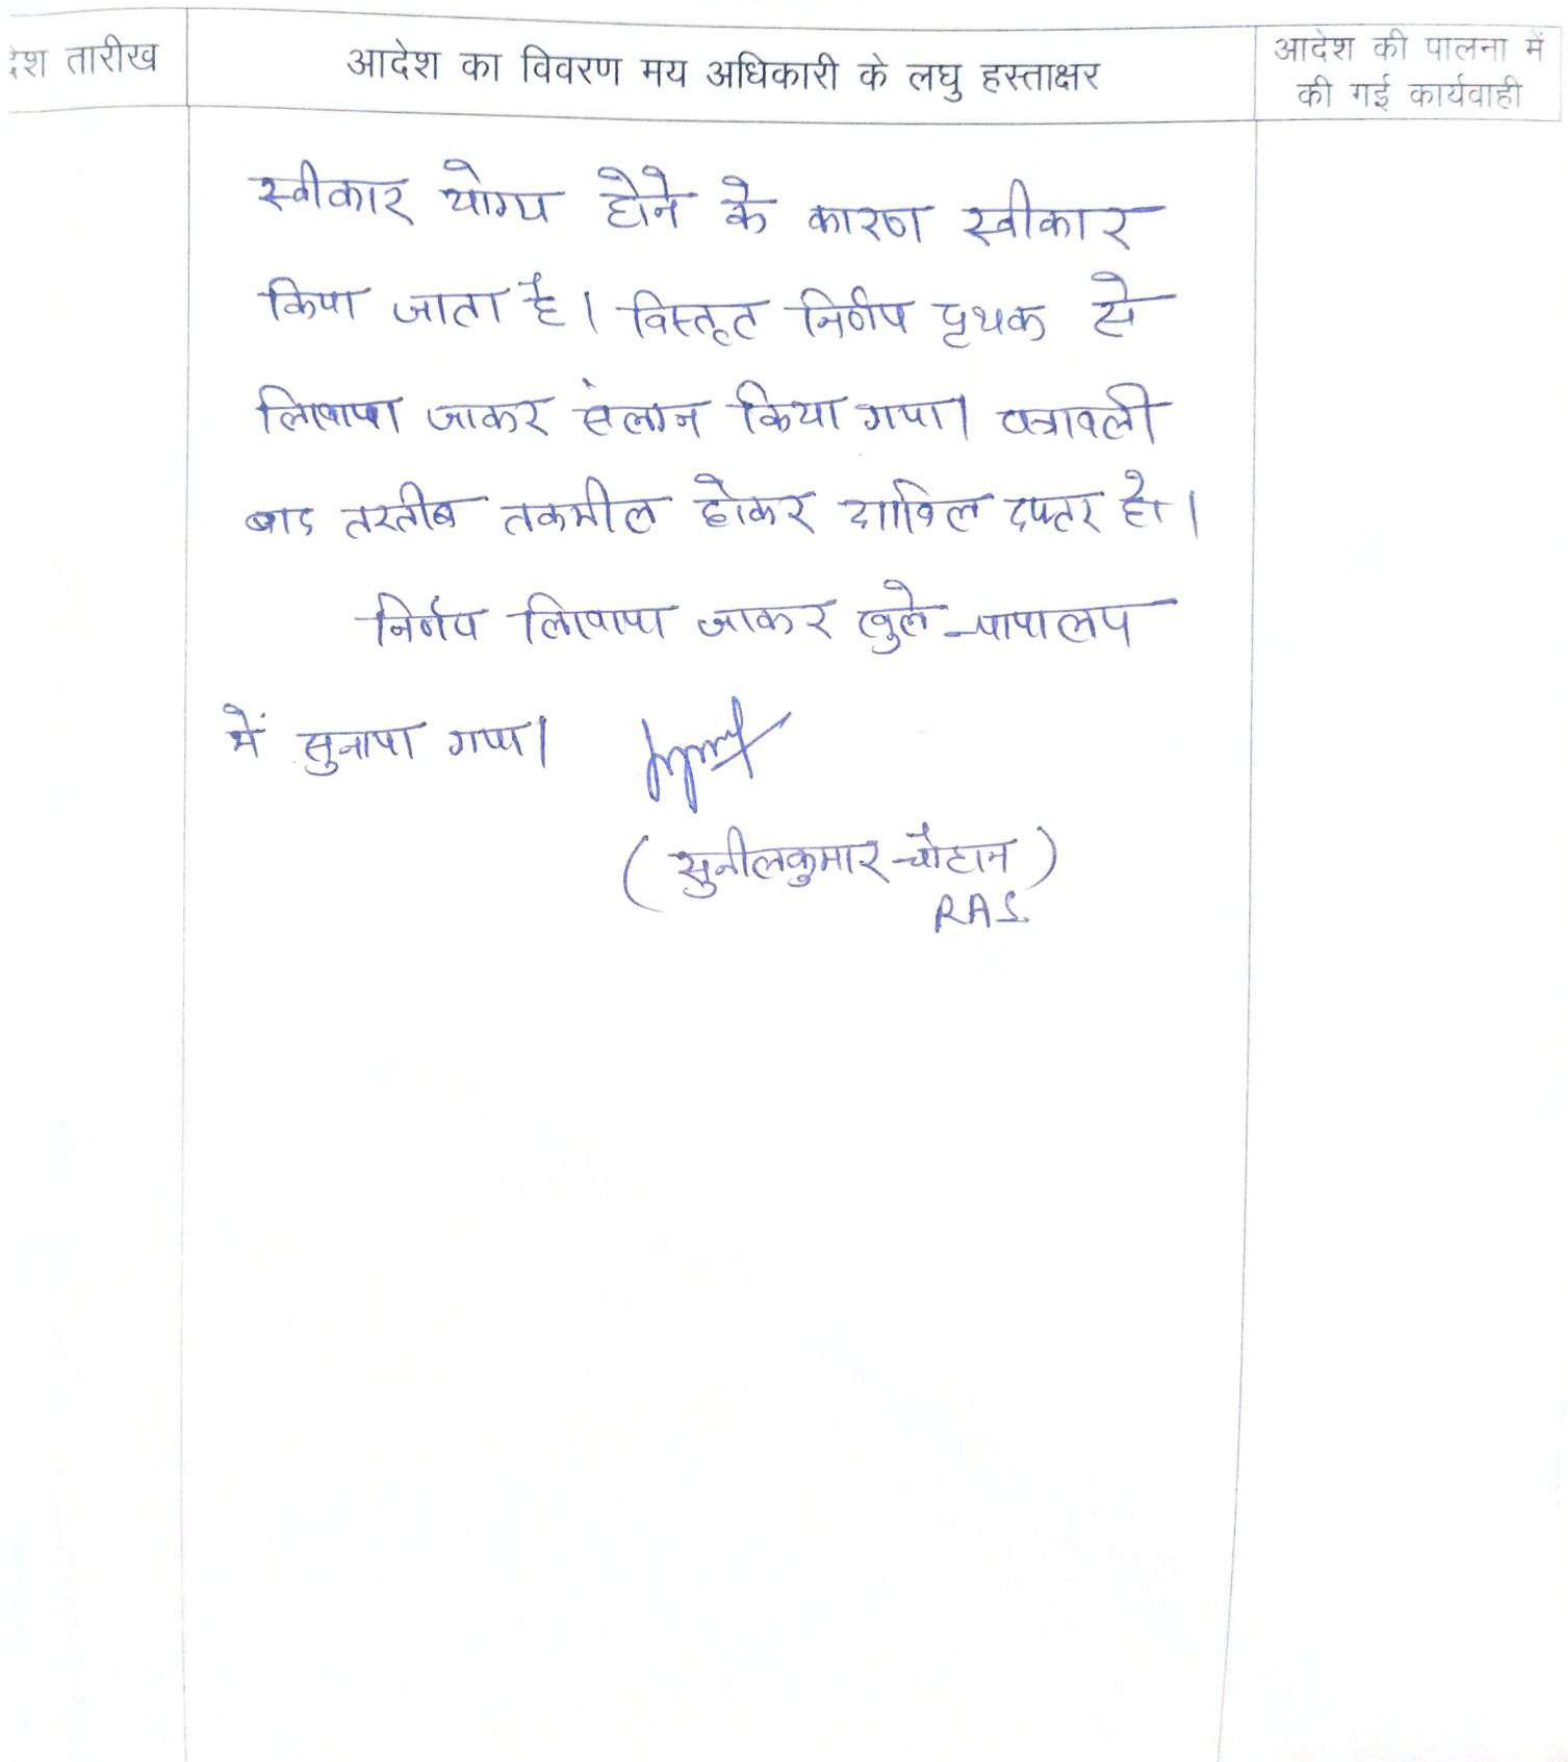 देश तारीख
आदेश का विवरण मय अधिकारी के लघु हस्ताक्षर
आदेश की पालना में
की गई कार्यवाही
स्वीकार योग्य होने के कारण स्वीकार
किया जाता है। विस्तृत निर्णय पृथक से
लिखाया जाकर संलग्न किया गया। पत्रावली
बाद तरतीब तकमील होकर दाखिल दफ्तर हो।
निर्णय लिखाया जाकर खुले न्यायालय
में सुनाया गया।
(सुनीलकुमार चौहान)
RAS.